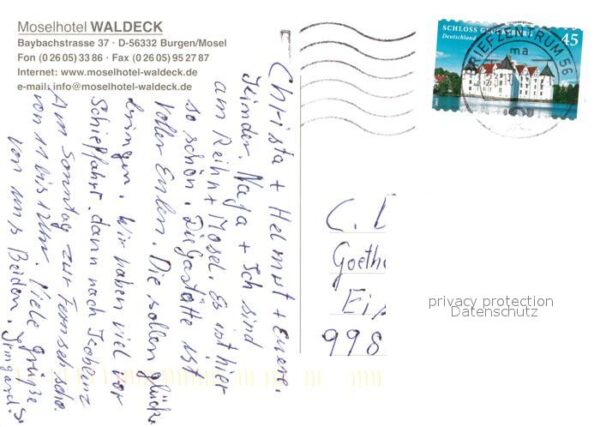 Moselhotel WALDECK
Baybachstrasse 37 · D-56332 Burgen/Mosel
Fon (0 26 05) 33 86 · Fax (0 26 05) 95 27 87
Internet: www.moselhotel-waldeck.de
e-mail: info@moselhotel-waldeck.de
Christa + Helmut + Euere
Kinder, Naja + Ich sind
am Reihn + Mosel. Es ist hier
so schön. Die Gastätte ist
voller Eulen. Die sollen glück
bringen. Wir haben viel vor
Schieffahrt. dann nach Koblenz
Am Sonntag zur Fernsehscho.
von 11 bis 12 Uhr. Viele Grüße
von uns Beiden, Irmgard
SCHLOSS GLÜCKSBURG
Deutschland
45
BRIEFZENTRUM 56
ma
C.
Goeth
Ei
998
privacy protection
Datenschutz